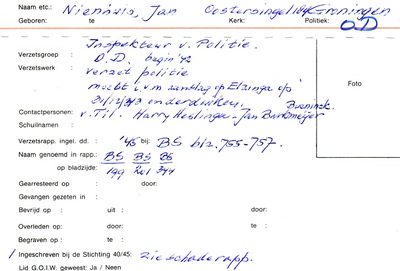 Naam etc.: Nienhuis, Jan Oostersingel 104 Groningen
Geboren: te Kerk: Politiek: O.D
Inspekteur v. Politie.
Verzetsgroep : O.D. begin '42
Verzetswerk : verzet politie
moest i.v.m aanslag op Elzinga op
31/12/43 onderduiken. Buninck.
Foto
Contactpersonen: v. Til. Harry Heslinga - Jan Barkmeijer
Schuilnaam :
Verzetsrapp. ingel. dd. : '45 bij: BS blz. 755-757.
Naam genoemd in rapp.: BS BS BS
op bladzijde: 199 201 344
Gearresteerd op : door:
Gevangen gezeten in :
Bevrijd op : uit : door:
Overleden op: door: te :
Begraven op : te :
/ Ingeschreven bij de Stichting 40/45: zie schaderapp.
Lid G.O.I.W. geweest: Ja / Neen